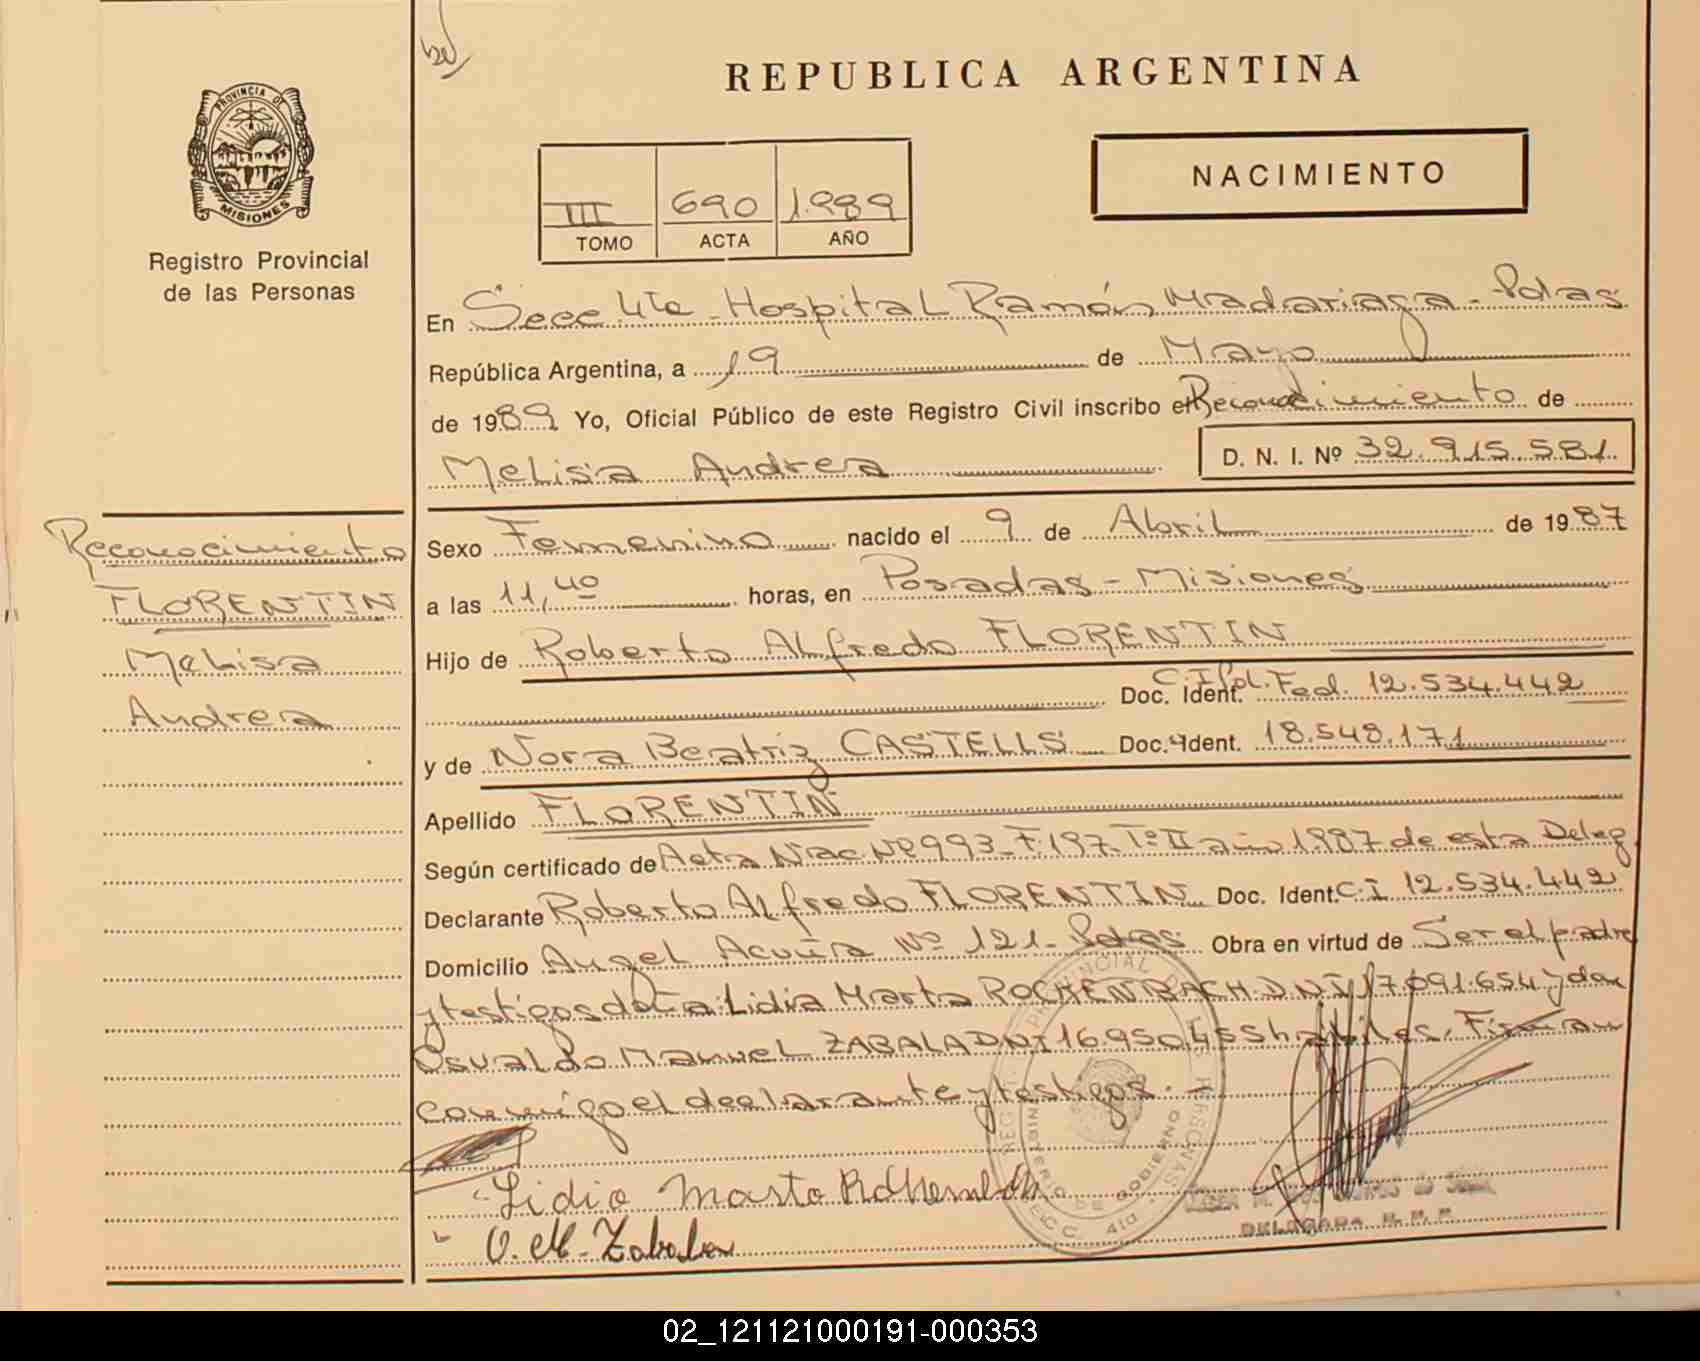 REPUBLICA ARGENTINA
PROVINCIA DE
MISIONES
Registro Provincial
de las Personas
III 690 1.989
TOMO ACTA AÑO
NACIMIENTO
En Secc 4ta - Hospital Ramón Madariaga - Pdas
República Argentina, a 19 de Mayo
de 1989 Yo, Oficial Público de este Registro Civil inscribo el Reconocimiento de
Melisa Andrea D. N. I. Nº 32.915.581
Reconocimiento
FLORENTIN
Melisa
Andrea
Sexo Femenino nacido el 9 de Abril de 1987
a las 11,40 horas, en Posadas - Misiones
Hijo de Roberto Alfredo FLORENTIN
Doc. Ident. C.I Pol. Fed. 12.534.442
y de Nora Beatriz CASTELLS Doc. Ident. 18.548.171
Apellido FLORENTIN
Según certificado de Acta Nac. Nº 993 - F. 197 Tº II año 1.987 de esta Deleg
Declarante Roberto Alfredo FLORENTIN Doc. Ident. C.I 12.534.442
Domicilio Angel Acuña Nº 121 - Pdas Obra en virtud de Ser el padre
y testigos doña: Lidia Marta ROCHENBACH DNI 17.091.654 y don
Osvaldo Manuel ZABALA DNI 16.950.455 habiles. Firman
conmigo el declarante y testigos. -
Lidia Marta
O. M. Zabala
DELEGADA R. P. P.
02_121121000191-000353